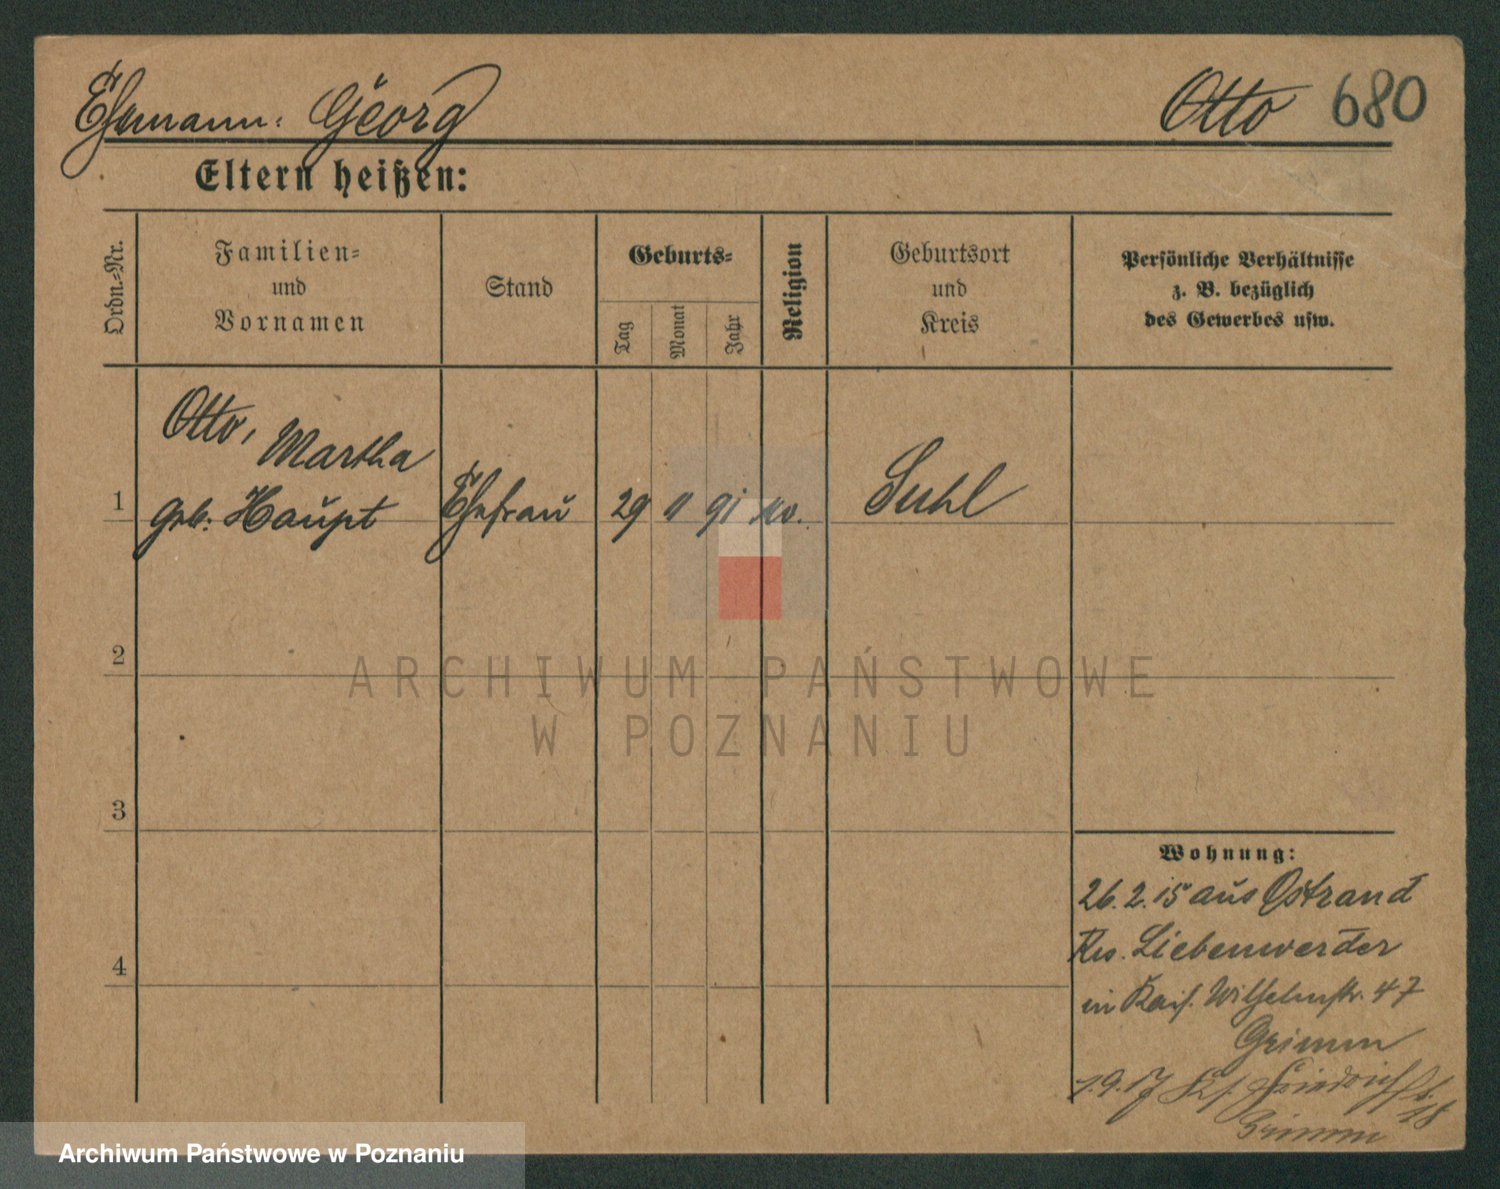 Ehemann: Georg Otto 680
Eltern heißen:
Ordn.-Nr.
Familien-
und
Vornamen
Stand
Geburts-
Tag
Monat
Jahr
Religion
Geburtsort
und
Kreis
Persönliche Verhältnisse
z. B. bezüglich
des Gewerbes usw.
Otto, Martha
1 geb: Haupt Ehefrau 29 11 91 Suhl
2
3
4
Wohnung:
26.2.15 aus Ostrand
Krs. Liebenwerder
in Kais. Wilhelmstr. 47
Grimm
1.9.17 Friedrichstr. 18
Grimm
ARCHIWUM PAŃSTWOWE
W POZNANIU
Archiwum Państwowe w Poznaniu